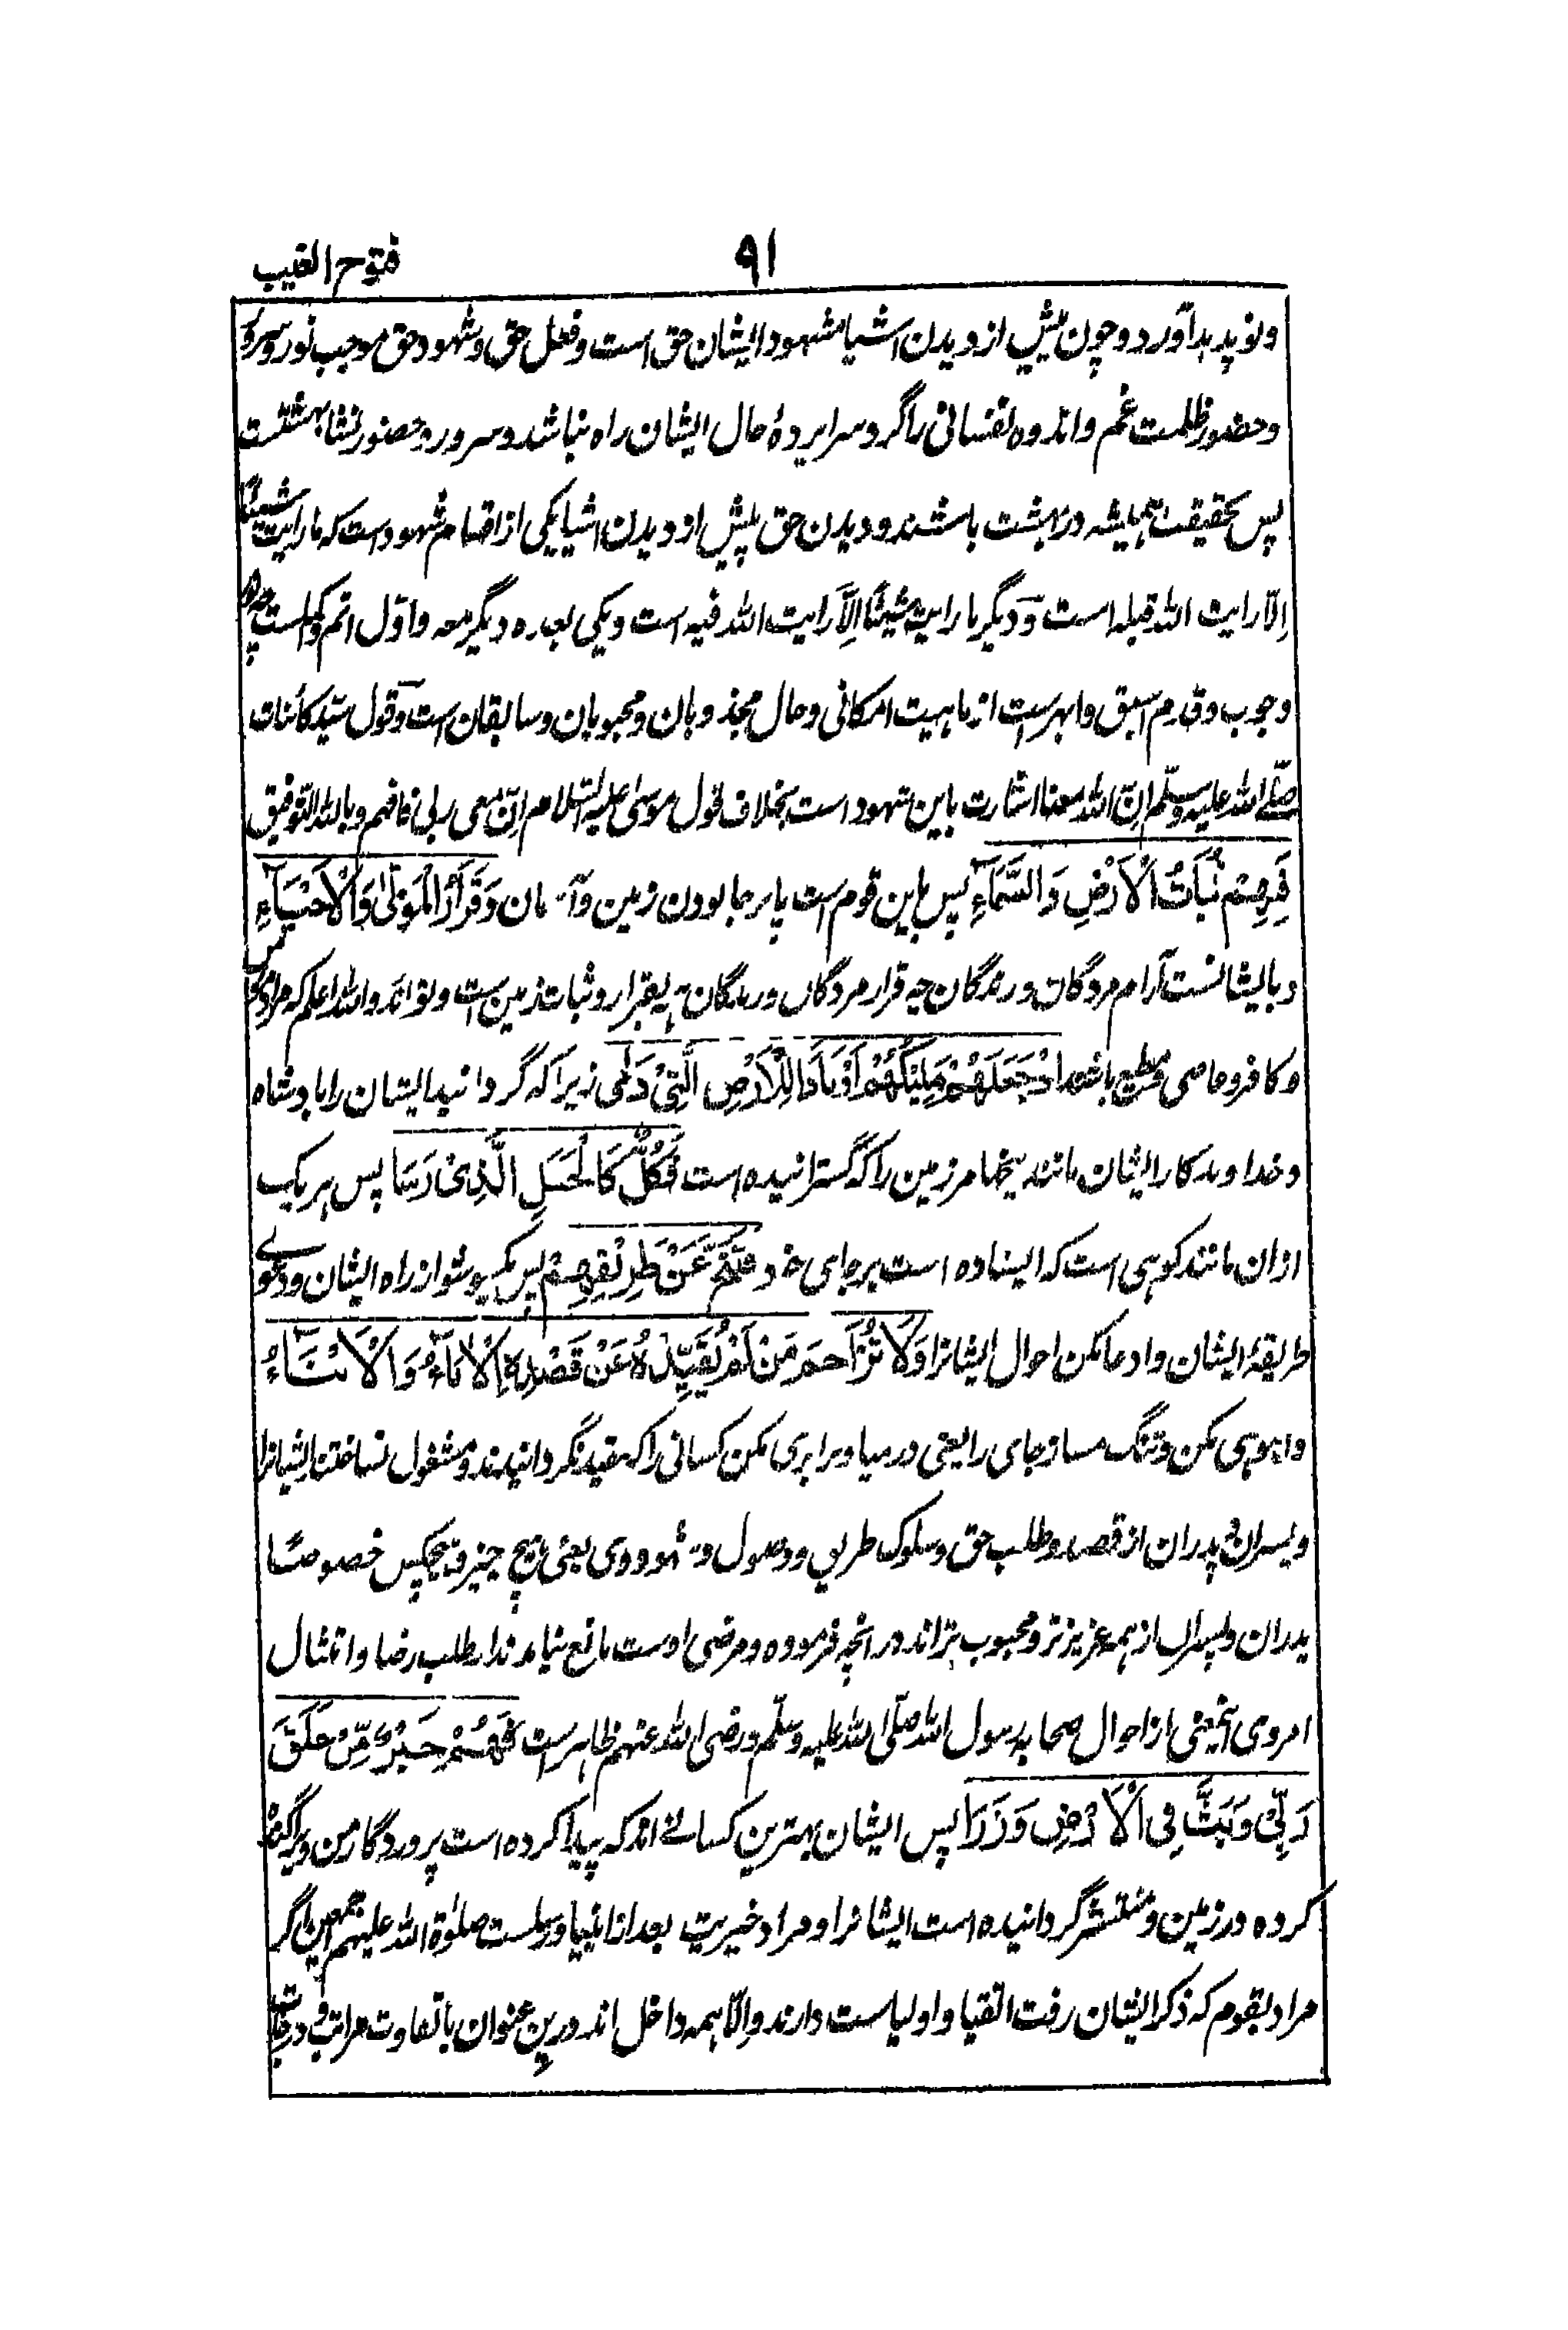 ۹۱ فتوح الغیب
ونو پدید آورد وچون پیش از دیدن اشیا مشهود ایشان حق است وفعل حق وشهود حق موجب نور وسرور
وحضور ظلمت غم واندوه نفسانی را گرد سراپردۀ حال ایشان راه نباشد وسرور وحضور نشابهشتست
پس بحقیقت همیشه در بهشت باشند ودیدن حق پیش از دیدن اشیا یکی از اقسام شهود است که ما رایت شیئا
اِلّا رایت الله قبله است ودیگر ما رایت شیئًا اِلّا رایت الله فیه است ویکی بعده دیگر معه واوّل اتم واکملست چه
وجوب وقدم اسبق واظهرست از ماهیت امکانی وحال مجذوبان ومحبوبان وسابقان است وقول سیّد کائنات
صلّے الله علیه وسلّم اِنّ الله معنا اشارت باین شهود است بخلاف قول موسیٰ علیه السّلام اِنّ معی ربی فافهم وبالله التّوفیق
فَبِهِمْ ثَبَاتُ الْاَرْضِ وَالسَّمَآءِ پس باین قوم است پابرجا بودن زمین وآسمان وَقَرَارُ الْمَوْتٰی وَالْاَحْیَآءِ
وبایشانست آرام مردگان وزندگان چه قرار مردگان وزندگان بقرار وثبات زمین است والله اعلم که مراد
وکافر وعاصی مطیع باشند اِذْ جَعَلَهُمْ مَلِیْکُهُمْ اَوْتَادًا لِّلْاَرْضِ الَّتِیْ دَحٰی زیرا که گردانید ایشان را پادشاه
وخداوندکار ایشان مانند میخها مر زمین را که گسترانیده است فَکُلٌّ کَالْجَبَلِ الَّذِیْ رَسَا پس هر یک
ازان مانند کوهی است که ایستاده است برجای خود فَتَنَحَّ عَنْ طَرِیْقِهِمْ پس یکسو شو از راه ایشان ودعوے
طریقۀ ایشان وادعا مکن احوال ایشانرا وَلَا تُزَاحِمْ مَنْ لَّمْ یُقَیِّدْهُ عَنْ قَصْدِهِ الْاٰبَآءُ وَالْاَبْنَآءُ
وانبوهی مکن وتنگ مساز جای را یعنی در میا وبرابری مکن کسانی را که مقید نگردانیدند ومشغول نساختند ایشانرا
وپسران پدران از قصد وطلب حق وسلوک طریق ووصول وشهود وی یعنی هیچ چیز وهیچکس خصوصًا
پدران وپسران از همه عزیزتر ومحبوب تراند در آنچه فرموده ومرضی اوست مانع نیامدند از طلب رضا وامتثال
امر وی این معنی از احوال صحابه رسول الله صلّی الله علیه وسلّم ورضی الله عنهم ظاهر است فَهُمْ خَیْرُ مَنْ خَلَقَ
رَبِّیْ وَبَثَّ فِی الْاَرْضِ وَذَرَا پس ایشان بهترین کسانے اند که پیدا کرده است پروردگار من وپراگنده
کرده در زمین ومنتشر گردانیده است ایشانرا ومراد خیریت بعد از انبیا ورسلست صلوٰة الله علیهم اجمعین اگر
مراد بقوم که ذکر ایشان رفت اتقیا واولیاست دارند واِلّا همه داخل اند درین عنوان با تفاوت مراتب ودرجات